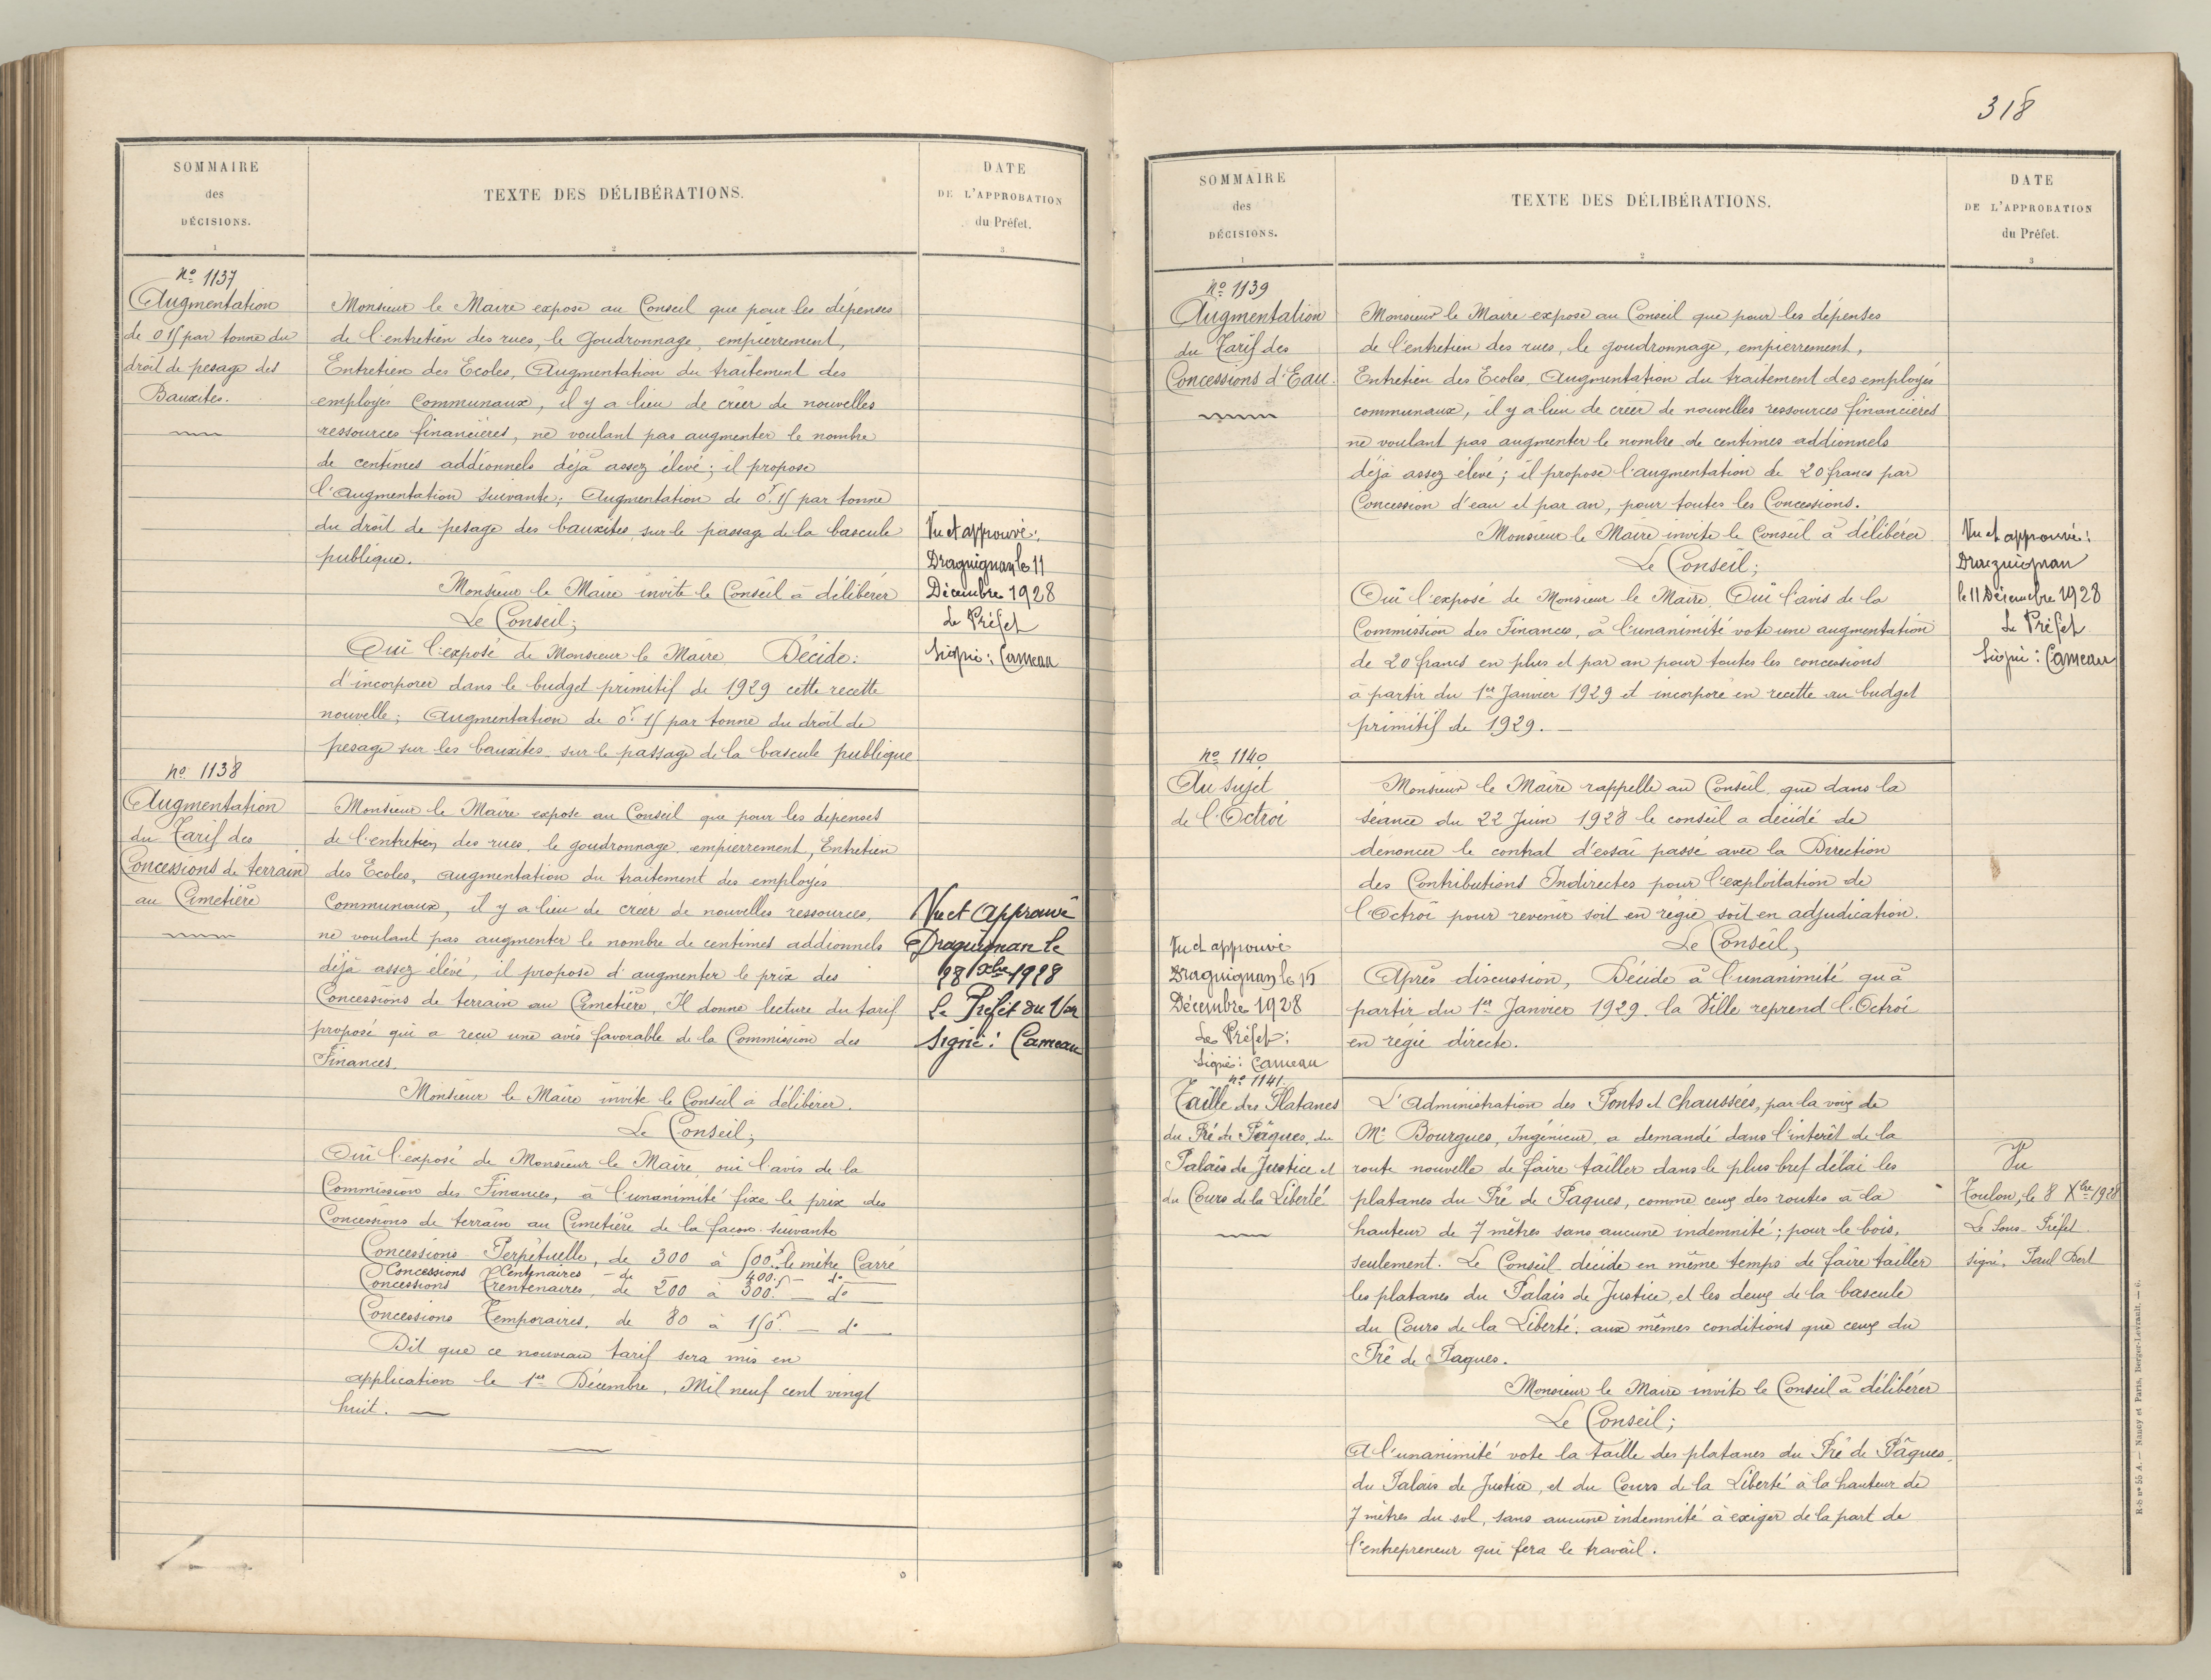 SOMMAIRE
des
DÉCISIONS.
1
TEXTE DES DÉLIBÉRATIONS.
2
DATE
DE L'APPROBATION
du Préfet.
3
No 1137
Augmentation
de 0 15 par tonne du
droit de pesage des
Bauxites.
Monsieur le Maire expose au Conseil que pour les dépenses
de l'entretien des rues, le Goudronnage, empierrement,
Entretien des Ecoles, Augmentation du traitement des
employés Communaux, il y a lieu de créer de nouvelles
ressources financières, ne voulant pas augmenter le nombre
de centimes addionnels déjà assez élevé; il propose
l'Augmentation suivante; Augmentation de 0f.15 par tonne
du droit de pesage des bauxites sur le passage de la bascule
publique.
Monsieur le Maire invite le Conseil à délibérer
Le Conseil;
Oui l'exposé de Monsieur le Maire Décide:
d'incorporer dans le budget primitif de 1929 cette recette
nouvelle; Augmentation de 0f.15 par tonne du droit de
pesage sur les bauxites sur le passage de la bascule publique
Vu et approuvé:
Draguignan, le 11
Décembre 1928
Le Préfet
Signé: Cameau
No 1138
Augmentation
du Tarif des
Concessions de terrain
au Cimetière
Monsieur le Maire expose au Conseil que pour les dépenses
de l'entretien des rues, le goudronnage, empierrement, Entretien
des Ecoles, augmentation du traitement des employés
Communaux, il y a lieu de créer de nouvelles ressources,
ne voulant pas augmenter le nombre de centimes addionnels
déjà assez élévé, il propose d'augmenter le prix des
Concessions de terrain au Cimetière, Il donne lecture du tarif
proposé qui a reçu une avis favorable de la Commission des
Finances.
Monsieur le Maire invite le Conseil à délibérer.
Le Conseil;
Oui l'exposé de Monsieur le Maire, oui l'avis de la
Commission des Finances, à l'unanimité fixe le prix des
Concessions de terrain au Cimetière de la façon suivante
Concessions Perpétuelle, de 300 à 500f. le mètre Carré
Concessions Centenaires - de 400f - do
Concessions Trentenaires, de 200 à 300f. - do
Concessions Temporaires, de 80 à 150f. - do
Dit que ce nouveau tarif sera mis en
application le 1er Décembre, Mil neuf cent vingt
huit.
Vu et Approuvé
Draguignan le
28 Xbre 1928
Le Préfet du Var
Signé: Cameau
318
SOMMAIRE
des
DÉCISIONS.
1
TEXTE DES DÉLIBÉRATIONS.
2
DATE
DE L'APPROBATION
du Préfet.
3
No 1139
Augmentation
du Tarif des
Concessions d'Eau.
Monsieur le Maire expose au Conseil que pour les dépenses
de l'entretien des rues, le goudronnage, empierrement,
Entretien des Ecoles, Augmentation du traitement des employés
communaux, il y a lieu de créer de nouvelles ressources financières
ne voulant pas augmenter le nombre de centimes addionnels
déjà assez élevé; il propose l'augmentation de 20 francs par
Concession d'eau et par an, pour toutes les Concessions.
Monsieur le Maire invite le Conseil à délibérer
Le Conseil;
Oui l'exposé de Monsieur le Maire, Oui l'avis de la
Commission des Finances, à l'unanimité vote une augmentation
de 20 francs en plus et par an pour toutes les concessions
à partir du 1er Janvier 1929 et incorpore en recette au budget
primitif de 1929.
Vu et approuvé:
Draguignan
le 11 Décembre 1928
Le Préfet
Signé: Cameau
No 1140
Au sujet
de l'Octroi
Monsieur le Maire rappelle au Conseil, que dans la
séance du 22 Juin 1928 le conseil a décidé de
dénoncer le contrat d'essai passé avec la Direction
des Contributions Indirectes pour l'exploitation de
l'Octroi pour revenir soit en régie soit en adjudication.
Le Conseil,
Après discussion, Décide à l'unanimité qu'à
partir du 1er Janvier 1929 la Ville reprend l'Octroi
en régie directe.
Vu et approuvé
Draguignan, le 15
Décembre 1928
Le Préfet:
Signé: Cameau
No 1141.
Taille des Platanes
du Pré de Pâques, du
Palais de Justice et
du Cours de la Liberté
L'Administration des Ponts et Chaussées, par la voix de
Mr Bourgues, Ingénieur, a demandé dans l'interêt de la
route nouvelle de faire tailler dans le plus bref délai les
platanes du Pré de Paques, comme ceux des routes à la
hauteur de 7 mètres sans aucune indemnité; pour le bois,
seulement. Le Conseil décide en même temps de faire tailler
les platanes du Palais de Justice, et les deux de la bascule
du Cours de la Liberté, aux mêmes conditions que ceux du
Pré de Paques.
Monsieur le Maire invite le Conseil à délibérer
Le Conseil;
A l'unanimité vote la taille des platanes du Pré de Pâques,
du Palais de Justice, et du Cours de la Liberté à la hauteur de
7 mètres du sol, sans aucune indemnité à exiger de la part de
l'entrepreneur qui fera le travail.
Vu
Toulon, le 8 Xbre 1928
Le Sous-Préfet
signé, Paul Bert
R-S nº 55 A. — Nancy et Paris, Berger-Levrault. — 6.